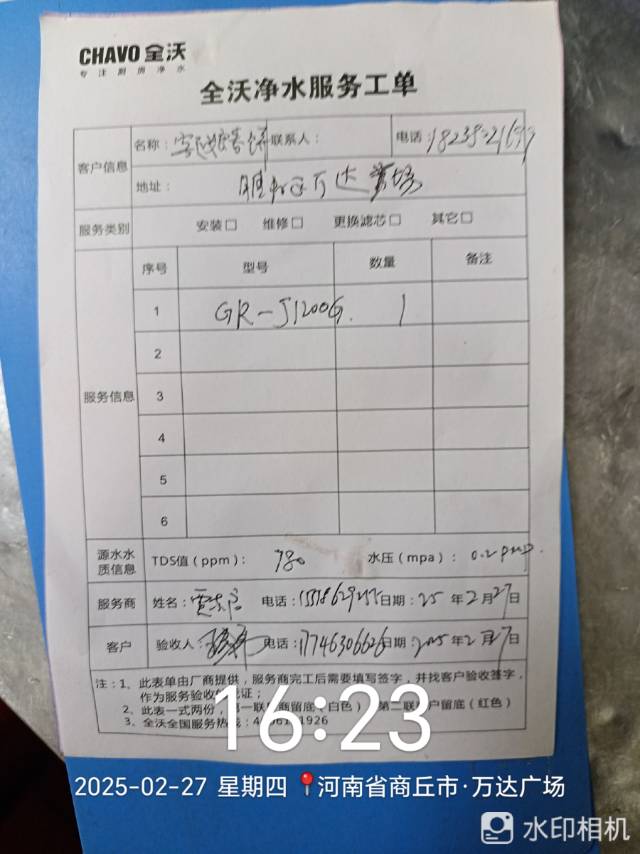 CHAVO 全沃
专注厨房净水
全沃净水服务工单
客户信息 名称： 联系人： 电话：
地址： 万达广场
服务类别 安装□ 维修□ 更换滤芯□ 其它□
序号 型号 数量 备注
1 GR-J1200G. 1
2
服务信息 3
4
5
6
源水水质信息 TDS值（ppm）： 780 水压（mpa）：
服务商 姓名： 电话： 日期：25年2月27日
客户 验收人： 电话：17746306626 日期：2025年2月27日
注：1、此表单由厂商提供，服务商完工后需要填写签字，并找客户验收签字，
作为服务验收 证；
2、此表一式两份， 一联 商留底（白色） 第二联 户留底（红色）
3、全沃全国服务热线：4 1926
16:23
2025-02-27 星期四 河南省商丘市·万达广场
水印相机